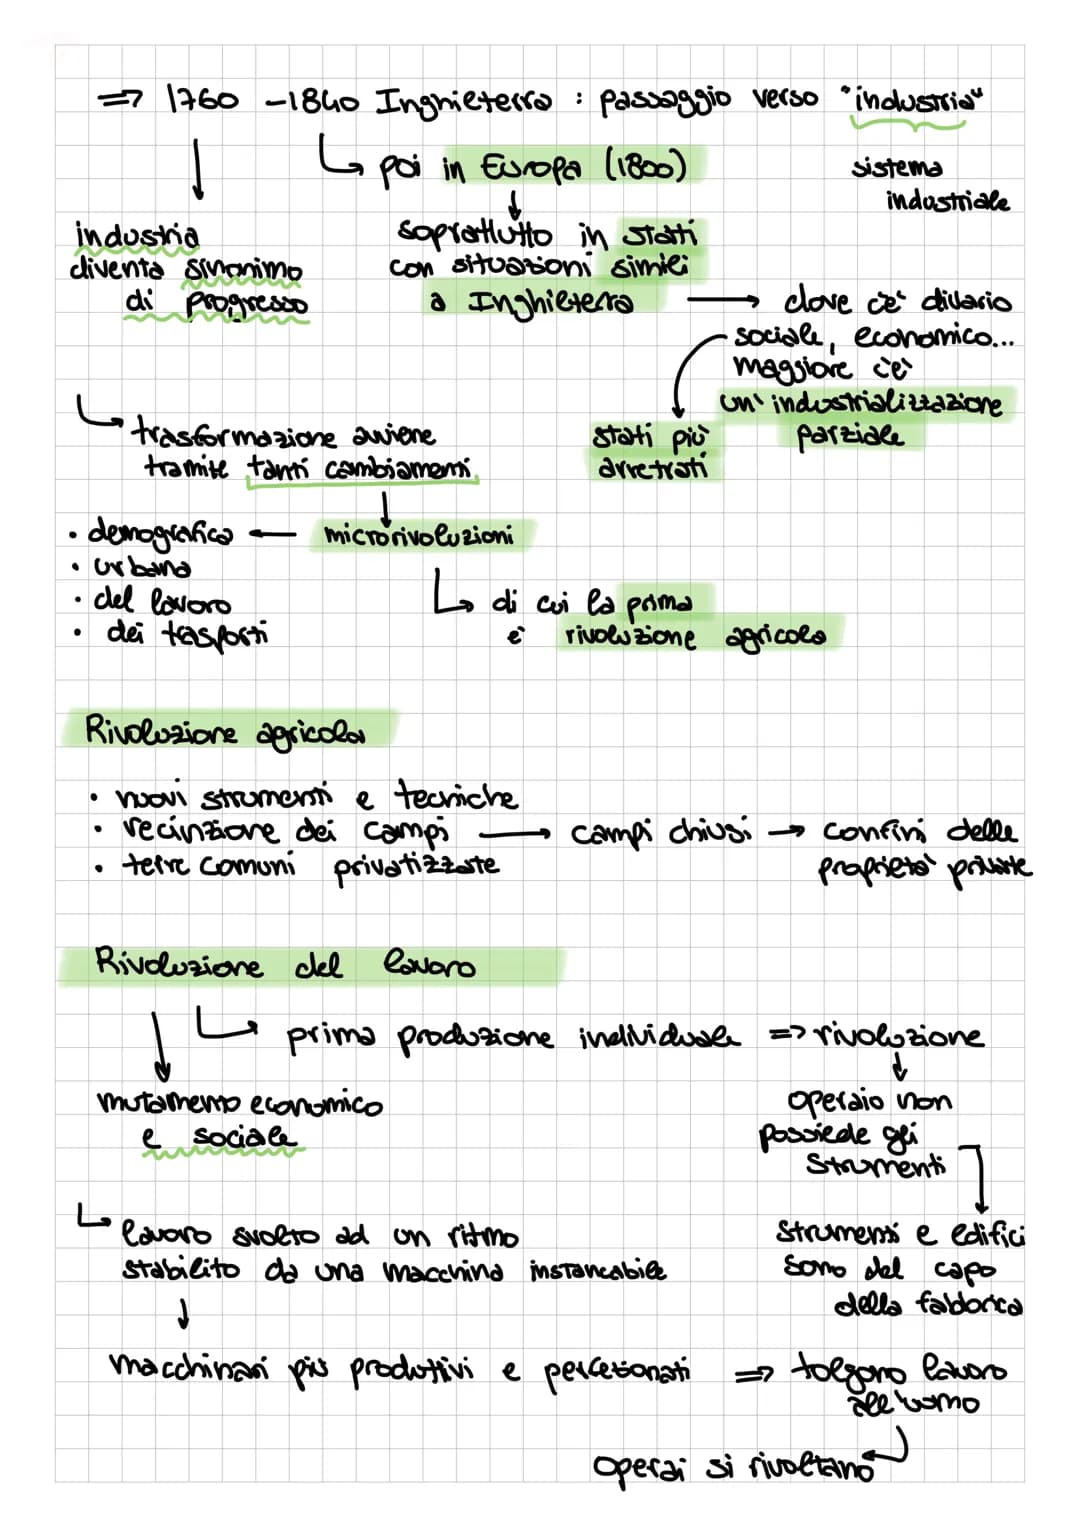 => 1760 -1840 Inghieterra : passaggio verso "industria"
↳ poi in Europa (1800)
sistema
industriale
industria
diventa sinonimo
di progresso
soprattutto in stati
con situazioni simili
a Inghieterra → dove c'è divario
sociale, economico...
maggiore c'è
un'industrializzazione
parziale
stati più
arretrati
↳ trasformazione avviene
tramite tanti cambiamenti
microrivoluzioni
• demografica
• urbana
• del lavoro
• dei trasporti
↳ di cui la prima
è rivoluzione agricola
Rivoluzione agricola
• nuovi strumenti e tecniche
• recinzione dei campi → campi chiusi → confini delle
proprietà private
• terre comuni privatizzate
Rivoluzione del lavoro
↳ prima produzione individuale => rivoluzione
mutamento economico
e sociale
operaio non
possiede gli
strumenti
↳ lavoro svolto ad un ritmo
stabilito da una macchina instancabile
strumenti e edifici
sono del capo
della fabbrica
macchinari più produttivi e perfezionati => tolgono lavoro
all'uomo
operai si rivoltano